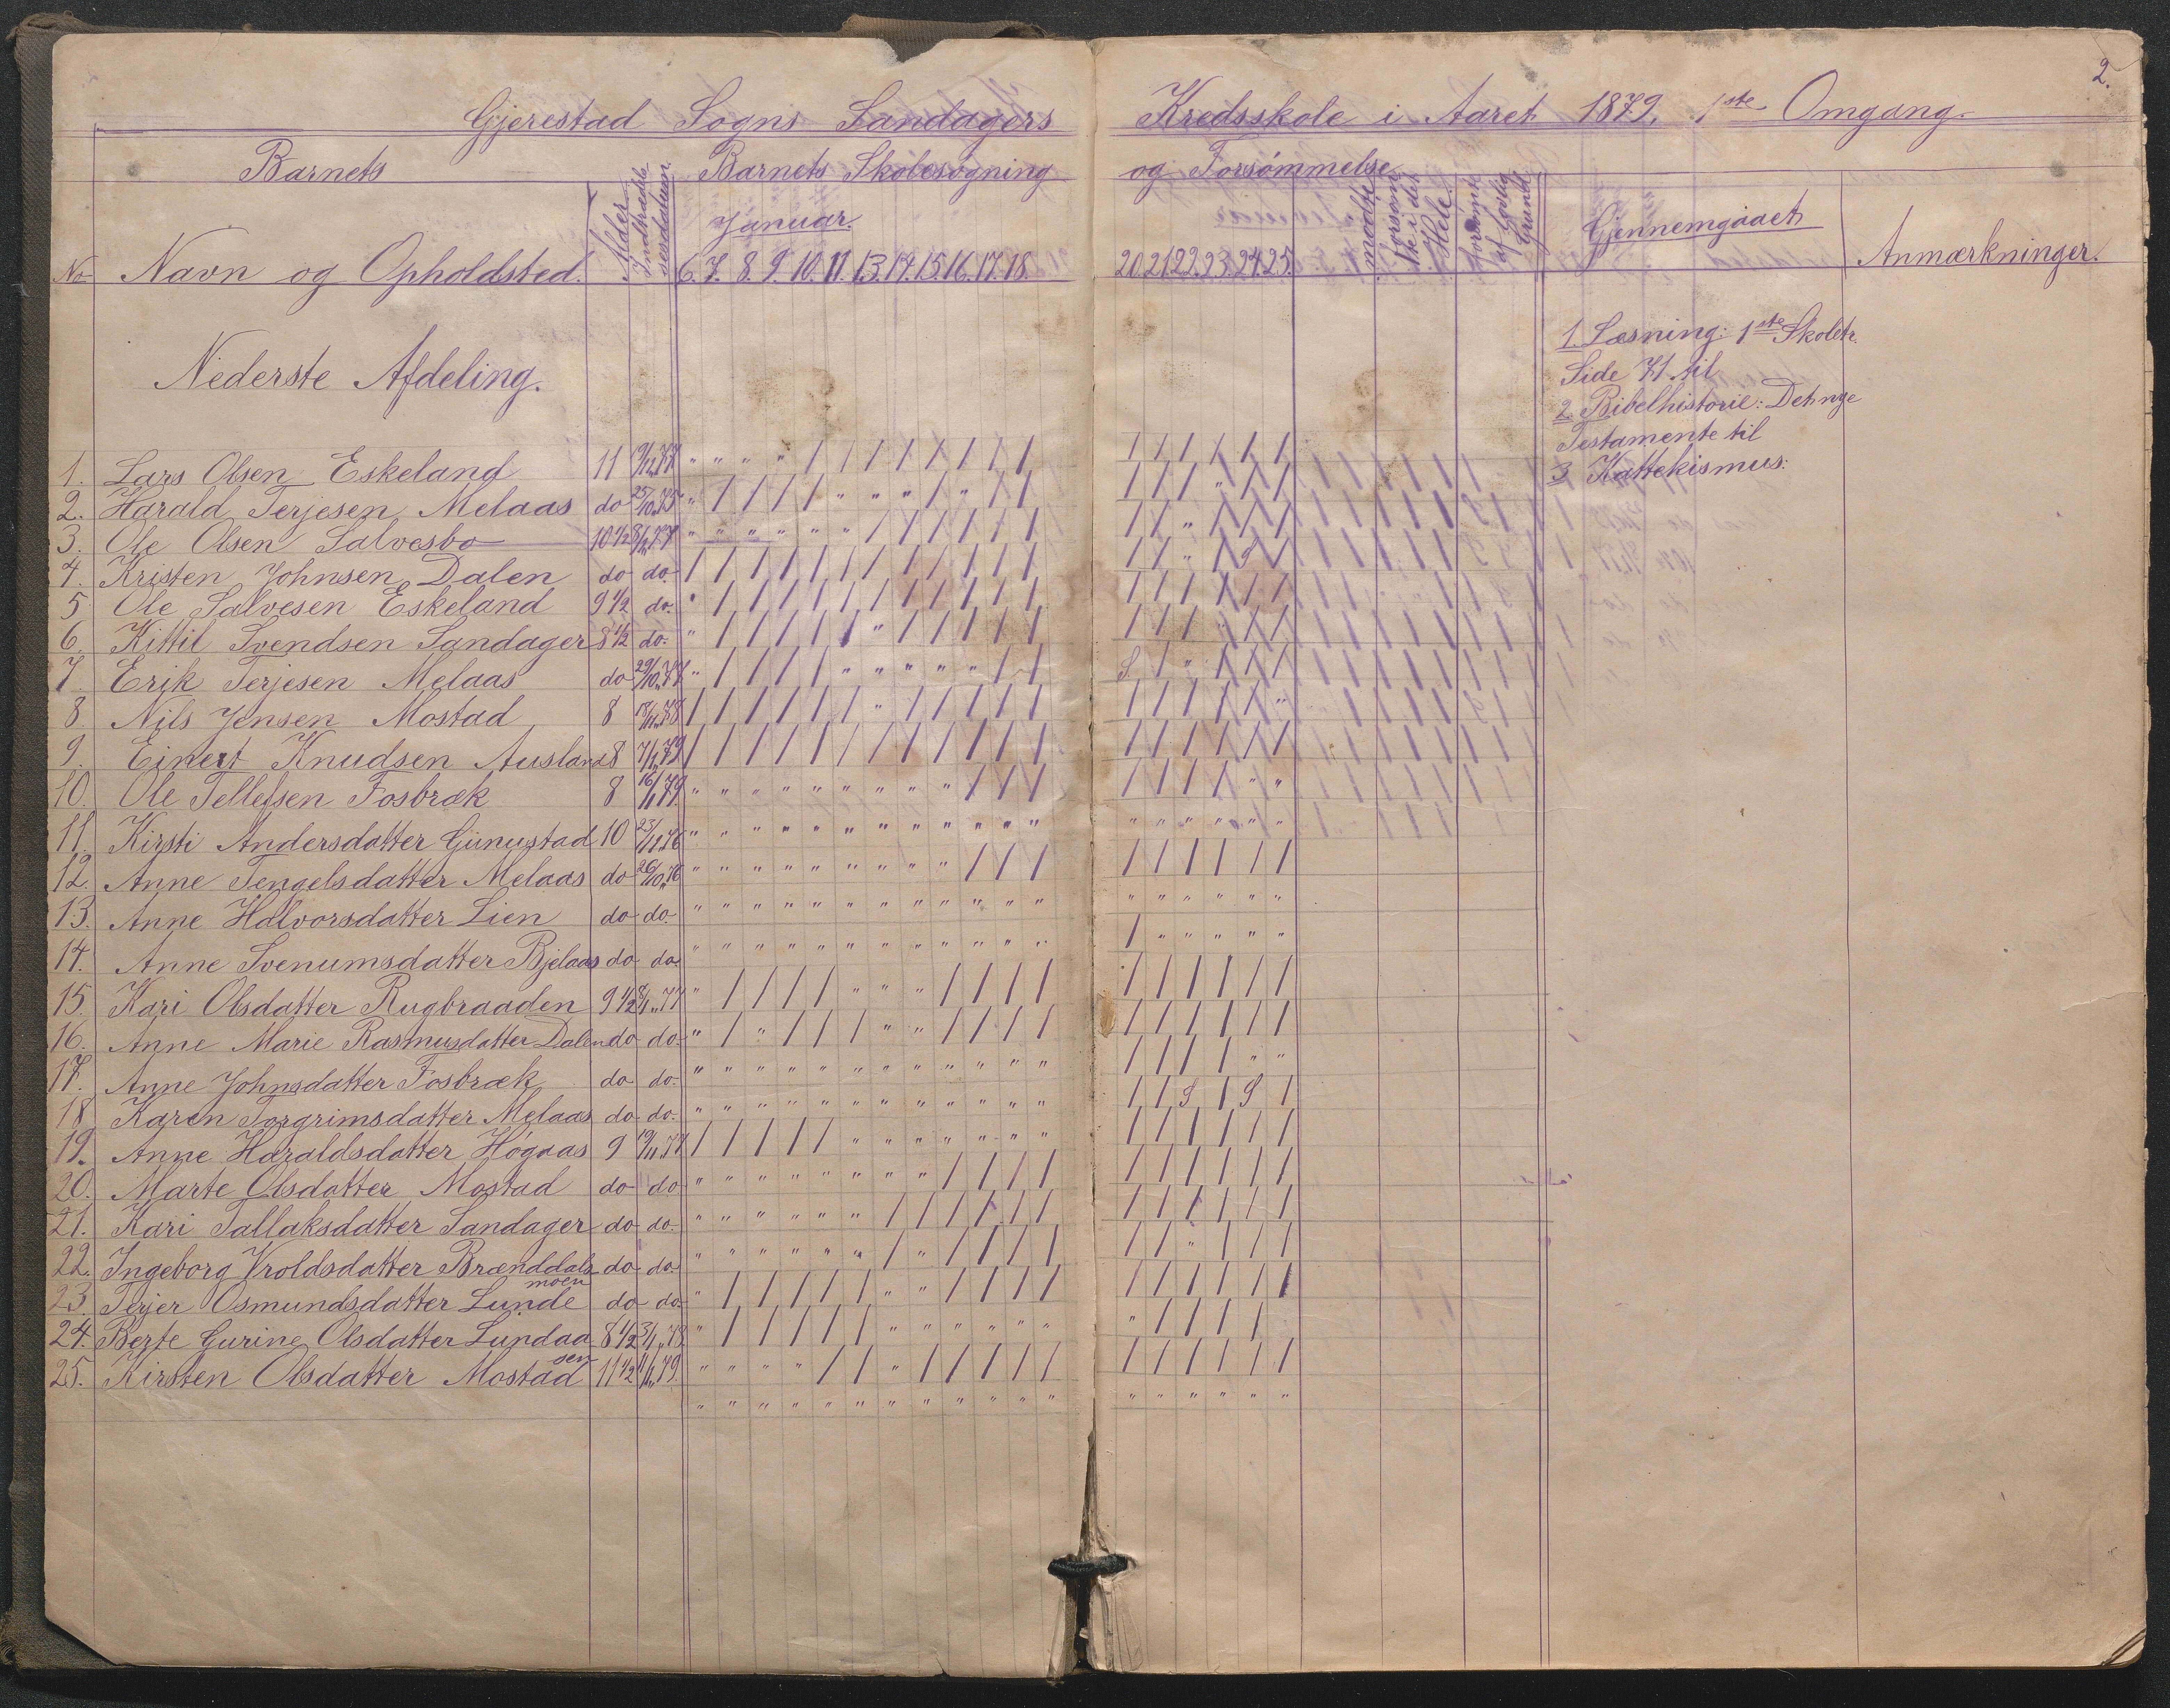 2.
Gjerestad Sogns Sandagers Kredsskole i Aaret 1879. 1ste Omgang.
Barnets Barnets Skolesøgning og Forsømmelse
No Navn og Opholdsted. Alder Indtrædelsesdatum. Januar. mødte forsømte i det Hele. forsømte af Gyldig Grund Gjennemgaaet Anmærkninger.
6. 7. 8. 9. 10. 11. 13. 14. 15. 16. 17. 18. 20. 21. 22. 23. 24. 25.
Nederste Afdeling.
1. Læsning: 1ste Skoletr.
Side 71 til
2. Bibelhistorie: Det nye
Testamente til
3 Kattekismus:
1. Lars Olsen Eskeland 11 " " " " / / / / / / / / / / / / / /
2. Harald Terjesen Melaas do 25/10 75 " / / / / " " " / " / / / / / " / /
3. Ole Olsen Salvesbo 10 1/2 " " " " " " / / / / / / / / " / / /
4. Kristen Johnsen Dalen do do. / / / / / / / / / / / / / / " / S /
5 Ole Salvesen Eskeland 9 1/2 do. " / / / / / / / / / / / / / / / / /
6. Kittil Svendsen Sandager 8 1/2 do. " / / / / / " / / / / / / / / " / /
7. Erik Terjesen Melaas do 29/10 77 " / / / / " " " " " / / S / " / / /
8. Nils Jensen Mostad 8 18/11 78 / / / / / / " / / / / / / / / / / "
9. Einert Knudsen Ausland 8 7/1 79 / / / / / / / / / / / / / / / / / /
10. Ole Tellefsen Fosbræk 8 16/1 79. " " " " " " " " " / / / / / / / " "
11. Kirsti Andersdatter Gunustad 10 23/11 76 " " " " " " " " " " " " " " " " " "
12. Anne Tengelsdatter Melaas do 26/10 76 " " " " " " " " " / / / / / / / / /
13. Anne Halvorsdatter Lien do do. " " " " " " " " " " " " " " " " " "
14. Anne Svenumsdatter Bjelaas do do. " " " " " " " " " " " " / " " " " "
15. Kari Olsdatter Rugbraaden 9 1/2 8/1 77 " / / / / " " " / / / / / / / / / /
16. Anne Marie Rasmusdatter Dalen do do. " / " / / / " " / / / / / / / / / /
17. Anne Johnsdatter Fosbræk do do. " " " " " " " " " " " " / / / / " "
18 Karen Torgrimsdatter Melaas do do. " " " " " " " " " " " " / / S / S /
19. Anne Haraldsdatter Høgaas 9 19/11 77 / / / / / " " " " " " " / / / / / /
20. Marte Olsdatter Mostad do do " " " " " " " " / / / / / / / / / /
21. Kari Tallaksdatter Sandager do do. " " " " " " / / / / / / / / / / / /
22. Ingeborg Vroldsdatter Brænddals do do " " " " " " / " / / / / / / " / / /
moen
23. Terjer Osmundsdatter Lunde do do. " / / / / / " " / / / / / / / / / /
24. Berte Gurine Olsdatter Lundaa 8 1/2 3/1 78. " / / / / / " " " " " " " / / / /
sen
25. Kirsten Olsdatter Mostad 11 1/2 11/1 79. " " " " / / " / / / / / / / / / / /
" " " " " " " " " " " " " " " " " "